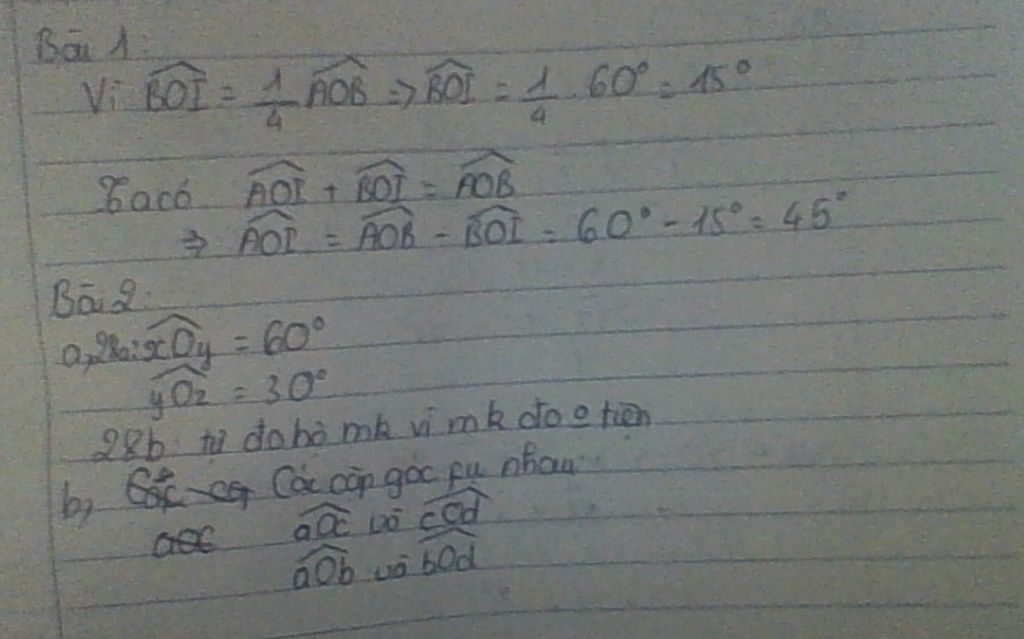 Bài 1:
Vì BOI = 1/4 AOB => BOI = 1/4 . 60° = 15°
Ta có AOI + BOI = AOB
=> AOI = AOB - BOI = 60° - 15° = 45°
Bài 2:
a, 28a: xOy = 60°
yOz = 30°
28b: tự đo hộ mk vì mk đo o tiện
b, Các cặp góc fụ nhau
aOc và cOd
aOb và bOd